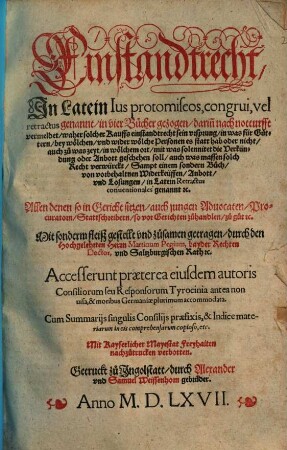 Einstandtrecht,
In Latein Ius protomiseos, congrui, vel
retractus genannt, in vier Bücher gezogen, darin nach notturfft
vermeldet, waher solches Kauffs einstandtrecht sein ursprung, in was für Gü-
tern, bey wölchen, vnd wider wölche Personen es statt hab oder nicht,
auch zů was zeyt, in wölchem ort, mit was solennitet die Verkün-
dung oder Anbott geschehen soll, auch was massen solch
Recht verwürckt, Sampt einem sondern Bůch,
von vorbehaltnen Widerkeüffen, Anbott,
vnd Losungen, in Latein Retractus
conuentionales genannt ꝛc.
Allen denen so in Gericht sitzen, auch jungen Aduocaten, Pro-
curatorn, Stattschreibern, so vor Gerichten zůhandlen, zů gůt ꝛc.
Mit sonderm fleiß gestellt vnd zůsamen getragen, durch den
Hochgelehrten Herrn Martinum Pegium, bayder Rechten
Doctor, vnd Saltzburgischen Rath ꝛc.
Accesserunt præterea eiusdem autoris
Consiliorum seu Responsorum Tyrocinia antea non
uisa, & moribus Germaniæ plurimum accommodata.
Cum Summarijs singulis Consilijs præfixis, & Indice mate-
riarum in eis comprehensarum copioso, etc.
Mit Kayserlicher Mayestat Freyhaiten
nachzůtrucken verbotten.
Getruckt zů Ingolstatt, durch Alexander
vnd Samuel Weissenhorn gebrůder.
Anno M. D. LXVII.